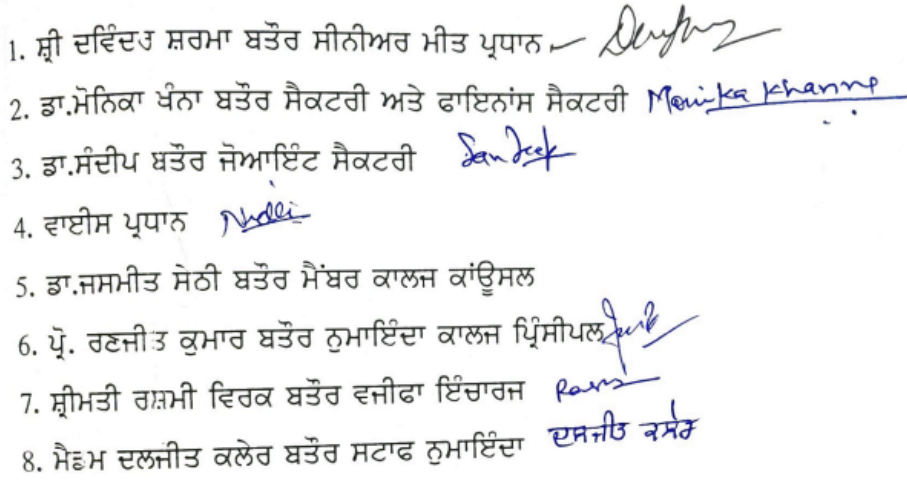 1. ਸ਼੍ਰੀ ਦਵਿੰਦਰ ਸ਼ਰਮਾ ਬਤੌਰ ਸੀਨੀਅਰ ਮੀਤ ਪ੍ਰਧਾਨ
2. ਡਾ.ਮੋਨਿਕਾ ਖੰਨਾ ਬਤੌਰ ਸੈਕਟਰੀ ਅਤੇ ਫਾਇਨਾਂਸ ਸੈਕਟਰੀ Monika Khanna
3. ਡਾ.ਸੰਦੀਪ ਬਤੌਰ ਜੋਆਇੰਟ ਸੈਕਟਰੀ Sandeep
4. ਵਾਈਸ ਪ੍ਰਧਾਨ
5. ਡਾ.ਜਸਮੀਤ ਸੇਠੀ ਬਤੌਰ ਮੈਂਬਰ ਕਾਲਜ ਕਾਂਊਸਲ
6. ਪ੍ਰੋ. ਰਣਜੀਤ ਕੁਮਾਰ ਬਤੌਰ ਨੁਮਾਇੰਦਾ ਕਾਲਜ ਪ੍ਰਿੰਸੀਪਲ
7. ਸ਼੍ਰੀਮਤੀ ਰਸ਼ਮੀ ਵਿਰਕ ਬਤੌਰ ਵਜੀਫਾ ਇੰਚਾਰਜ
8. ਮੈਡਮ ਦਲਜੀਤ ਕਲੇਰ ਬਤੌਰ ਸਟਾਫ ਨੁਮਾਇੰਦਾ ਦਲਜੀਤ ਕਲੇਰ